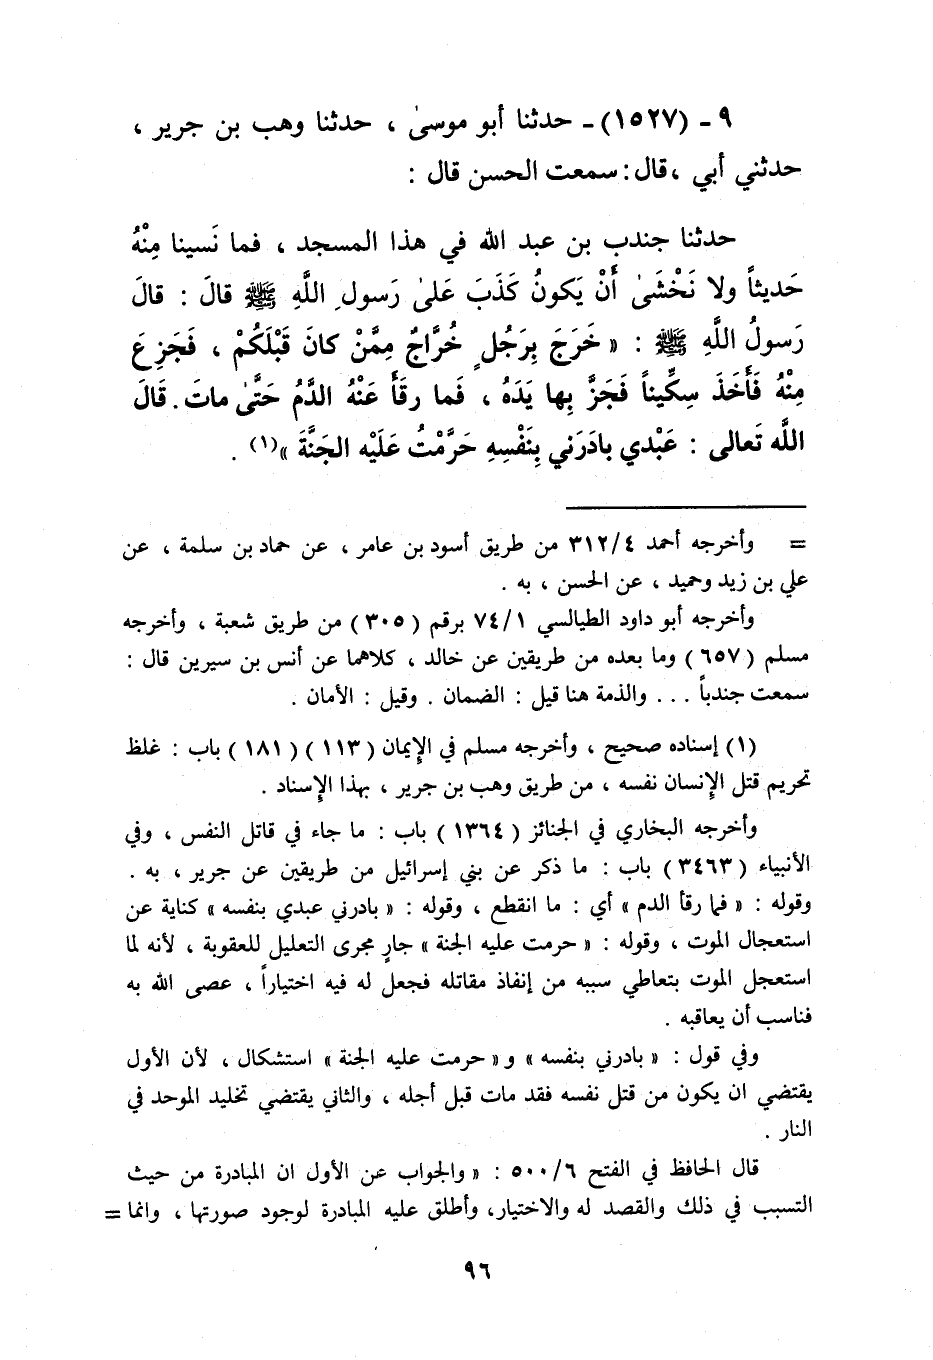 ٩ - (١٥٢٧) - حدثنا أبو موسىٰ ، حدثنا وهب بن جرير ،
حدثني أبي ، قال : سمعت الحسن قال :
حدثنا جندب بن عبد الله في هذا المسجد ، فما نَسينا مِنْهُ
حَديثاً ولا نَخْشَىٰ أَنْ يَكونُ كَذَبَ عَلىٰ رَسولِ اللَّهِ ﷺ قالَ : قالَ
رَسولُ اللَّهِ ﷺ : « خَرَجَ بِرَجُلٍ خُرَّاجٌ مِمَّنْ كانَ قَبْلَكُمْ ، فَجَزِعَ
مِنْهُ فَأَخَذَ سِكِّيناً فَجَزَّ بِها يَدَهُ ، فَما رقَأَ عَنْهُ الدَّمُ حَتَّىٰ ماتَ . قَالَ
اللَّه تَعالى : عَبْدي بادَرَني بِنَفْسِهِ حَرَّمْتُ عَلَيْه الجَنَّةَ »(١) .
= وأخرجه أحمد ٣١٢/٤ من طريق أسود بن عامر ، عن حماد بن سلمة ، عن
علي بن زيد وحميد ، عن الحسن ، به .
وأخرجه أبو داود الطيالسي ٧٤/١ برقم ( ٣٠٥ ) من طريق شعبة ، وأخرجه
مسلم ( ٦٥٧ ) وما بعده من طريقين عن خالد ، كلاهما عن أنس بن سيرين قال :
سمعت جندباً . . . والذمة هنا قيل : الضمان . وقيل : الأمان .
(١) إسناده صحيح ، وأخرجه مسلم في الإيمان ( ١١٣ ) ( ١٨١ ) باب : غلظ
تحريم قتل الإنسان نفسه ، من طريق وهب بن جرير ، بهذا الإسناد .
وأخرجه البخاري في الجنائز ( ١٣٦٤ ) باب : ما جاء في قاتل النفس ، وفي
الأنبياء ( ٣٤٦٣ ) باب : ما ذكر عن بني إسرائيل من طريقين عن جرير ، به .
وقوله : « فما رقأ الدم » أي : ما انقطع ، وقوله : « بادرني عبدي بنفسه » كناية عن
استعجال الموت ، وقوله : « حرمت عليه الجنة » جارٍ مجرى التعليل للعقوبة ، لأنه لما
استعجل الموت بتعاطي سببه من إنفاذ مقاتله فجعل له فيه اختياراً ، عصى الله به
فناسب أن يعاقبه .
وفي قول : « بادرني بنفسه » و« حرمت عليه الجنة » استشكال ، لأن الأول
يقتضي ان يكون من قتل نفسه فقد مات قبل أجله ، والثاني يقتضي تخليد الموحد في
النار .
قال الحافظ في الفتح ٥٠٠/٦ : « والجواب عن الأول ان المبادرة من حيث
التسبب في ذلك والقصد له والاختيار، وأطلق عليه المبادرة لوجود صورتها ، وانما =
٩٦